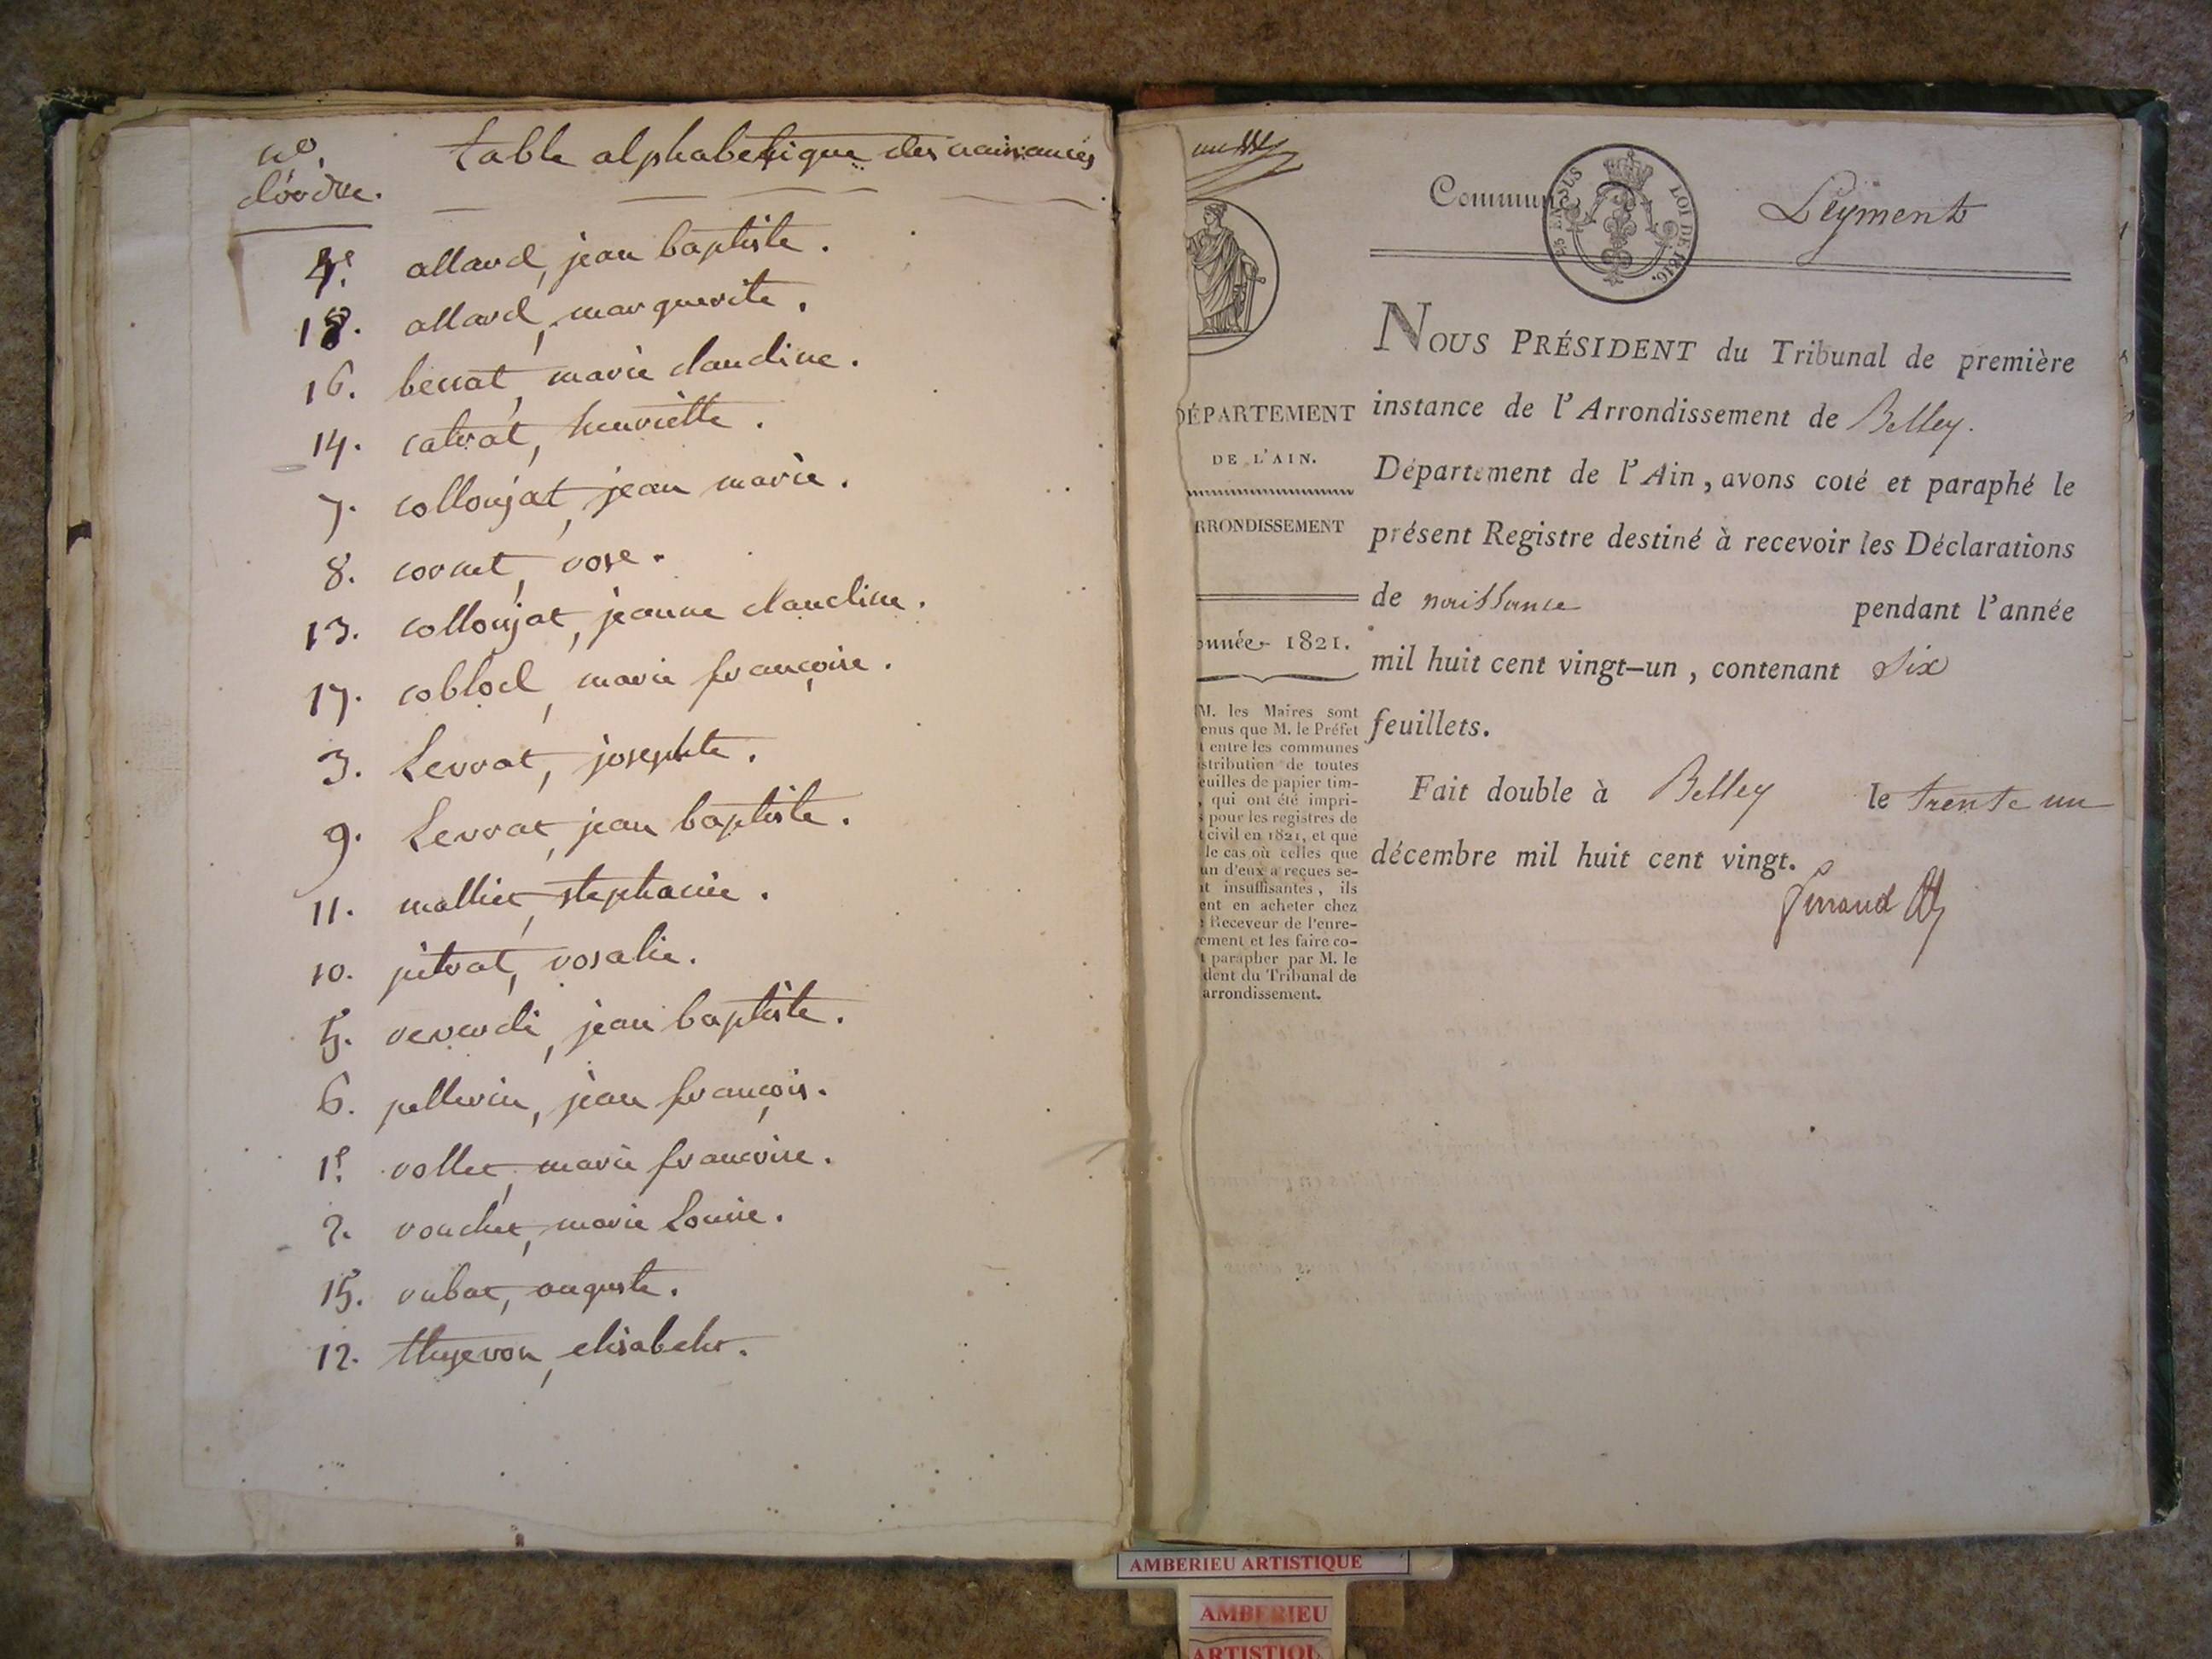 no.
d'ordre.
table alphabetique des naissances
4e. allard, jean baptiste.
18. allard, marguerite.
16. berrat, marie claudine.
14. catrat, henriette.
7. collonjat, jean marie.
8. cornet, rose.
13. collonjat, jeanne claudine.
17. coblod, marie françoise.
3. Levrat, josephte.
9. Levrat, jean baptiste.
11. malliet, stephanie.
10. pitrat, rosalie.
5. reverdi, jean baptiste.
6. pellerin, jean françois.
1e. rollet, marie françoise.
2. rouchet, marie Louise.
15. rubat, auguste.
12. thyevon, elisabeht.
Commune Leyment
LOI DE 1816.
DÉPARTEMENT
DE L'AIN.
RRONDISSEMENT
année 1821.
M. les Maires sont
enus que M. le Préfet
t entre les communes
istribution de toutes
euilles de papier tim-
, qui ont été impri-
s pour les registres de
t civil en 1821, et que
le cas où celles que
un d'eux a reçues se-
nt insuffisantes, ils
ent en acheter chez
e Receveur de l'enre-
ement et les faire co-
t parapher par M. le
dent du Tribunal de
arrondissement.
NOUS PRÉSIDENT du Tribunal de première
instance de l'Arrondissement de Belley.
Département de l'Ain, avons coté et paraphé le
présent Registre destiné à recevoir les Déclarations
de naissance pendant l'année
mil huit cent vingt-un, contenant Six
feuillets.
Fait double à Belley le trente un
décembre mil huit cent vingt.
AMBERIEU ARTISTIQUE
AMBERIEU
ARTISTIQU